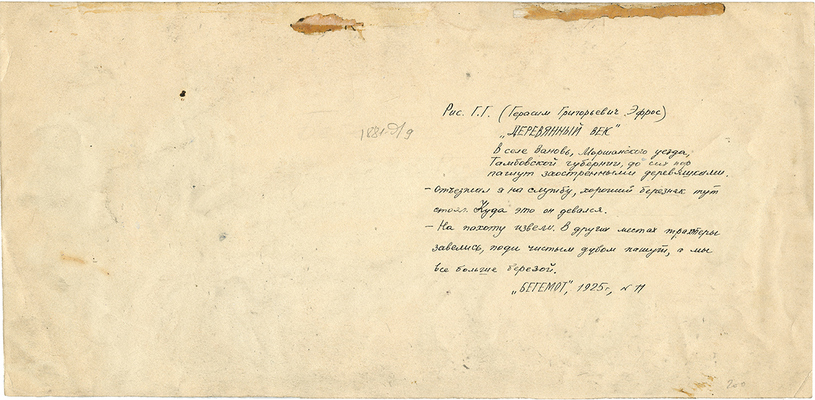 Рис. Г.Г. (Герасим Григорьевич Эфрос)
„ДЕРЕВЯННЫЙ ВЕК"
В селе Вановь, Моршанского уезда,
Тамбовской губернии, до сих пор
пашут заостренными деревяшками.
– Отъезжал я на службу, хороший березняк тут
стоял. Куда это он девался.
– На пахоту извели. В других местах трахторы
завелись, поди чистым дубом пашут, а мы
все больше березой.
„БЕГЕМОТ", 1925г, № 11
200